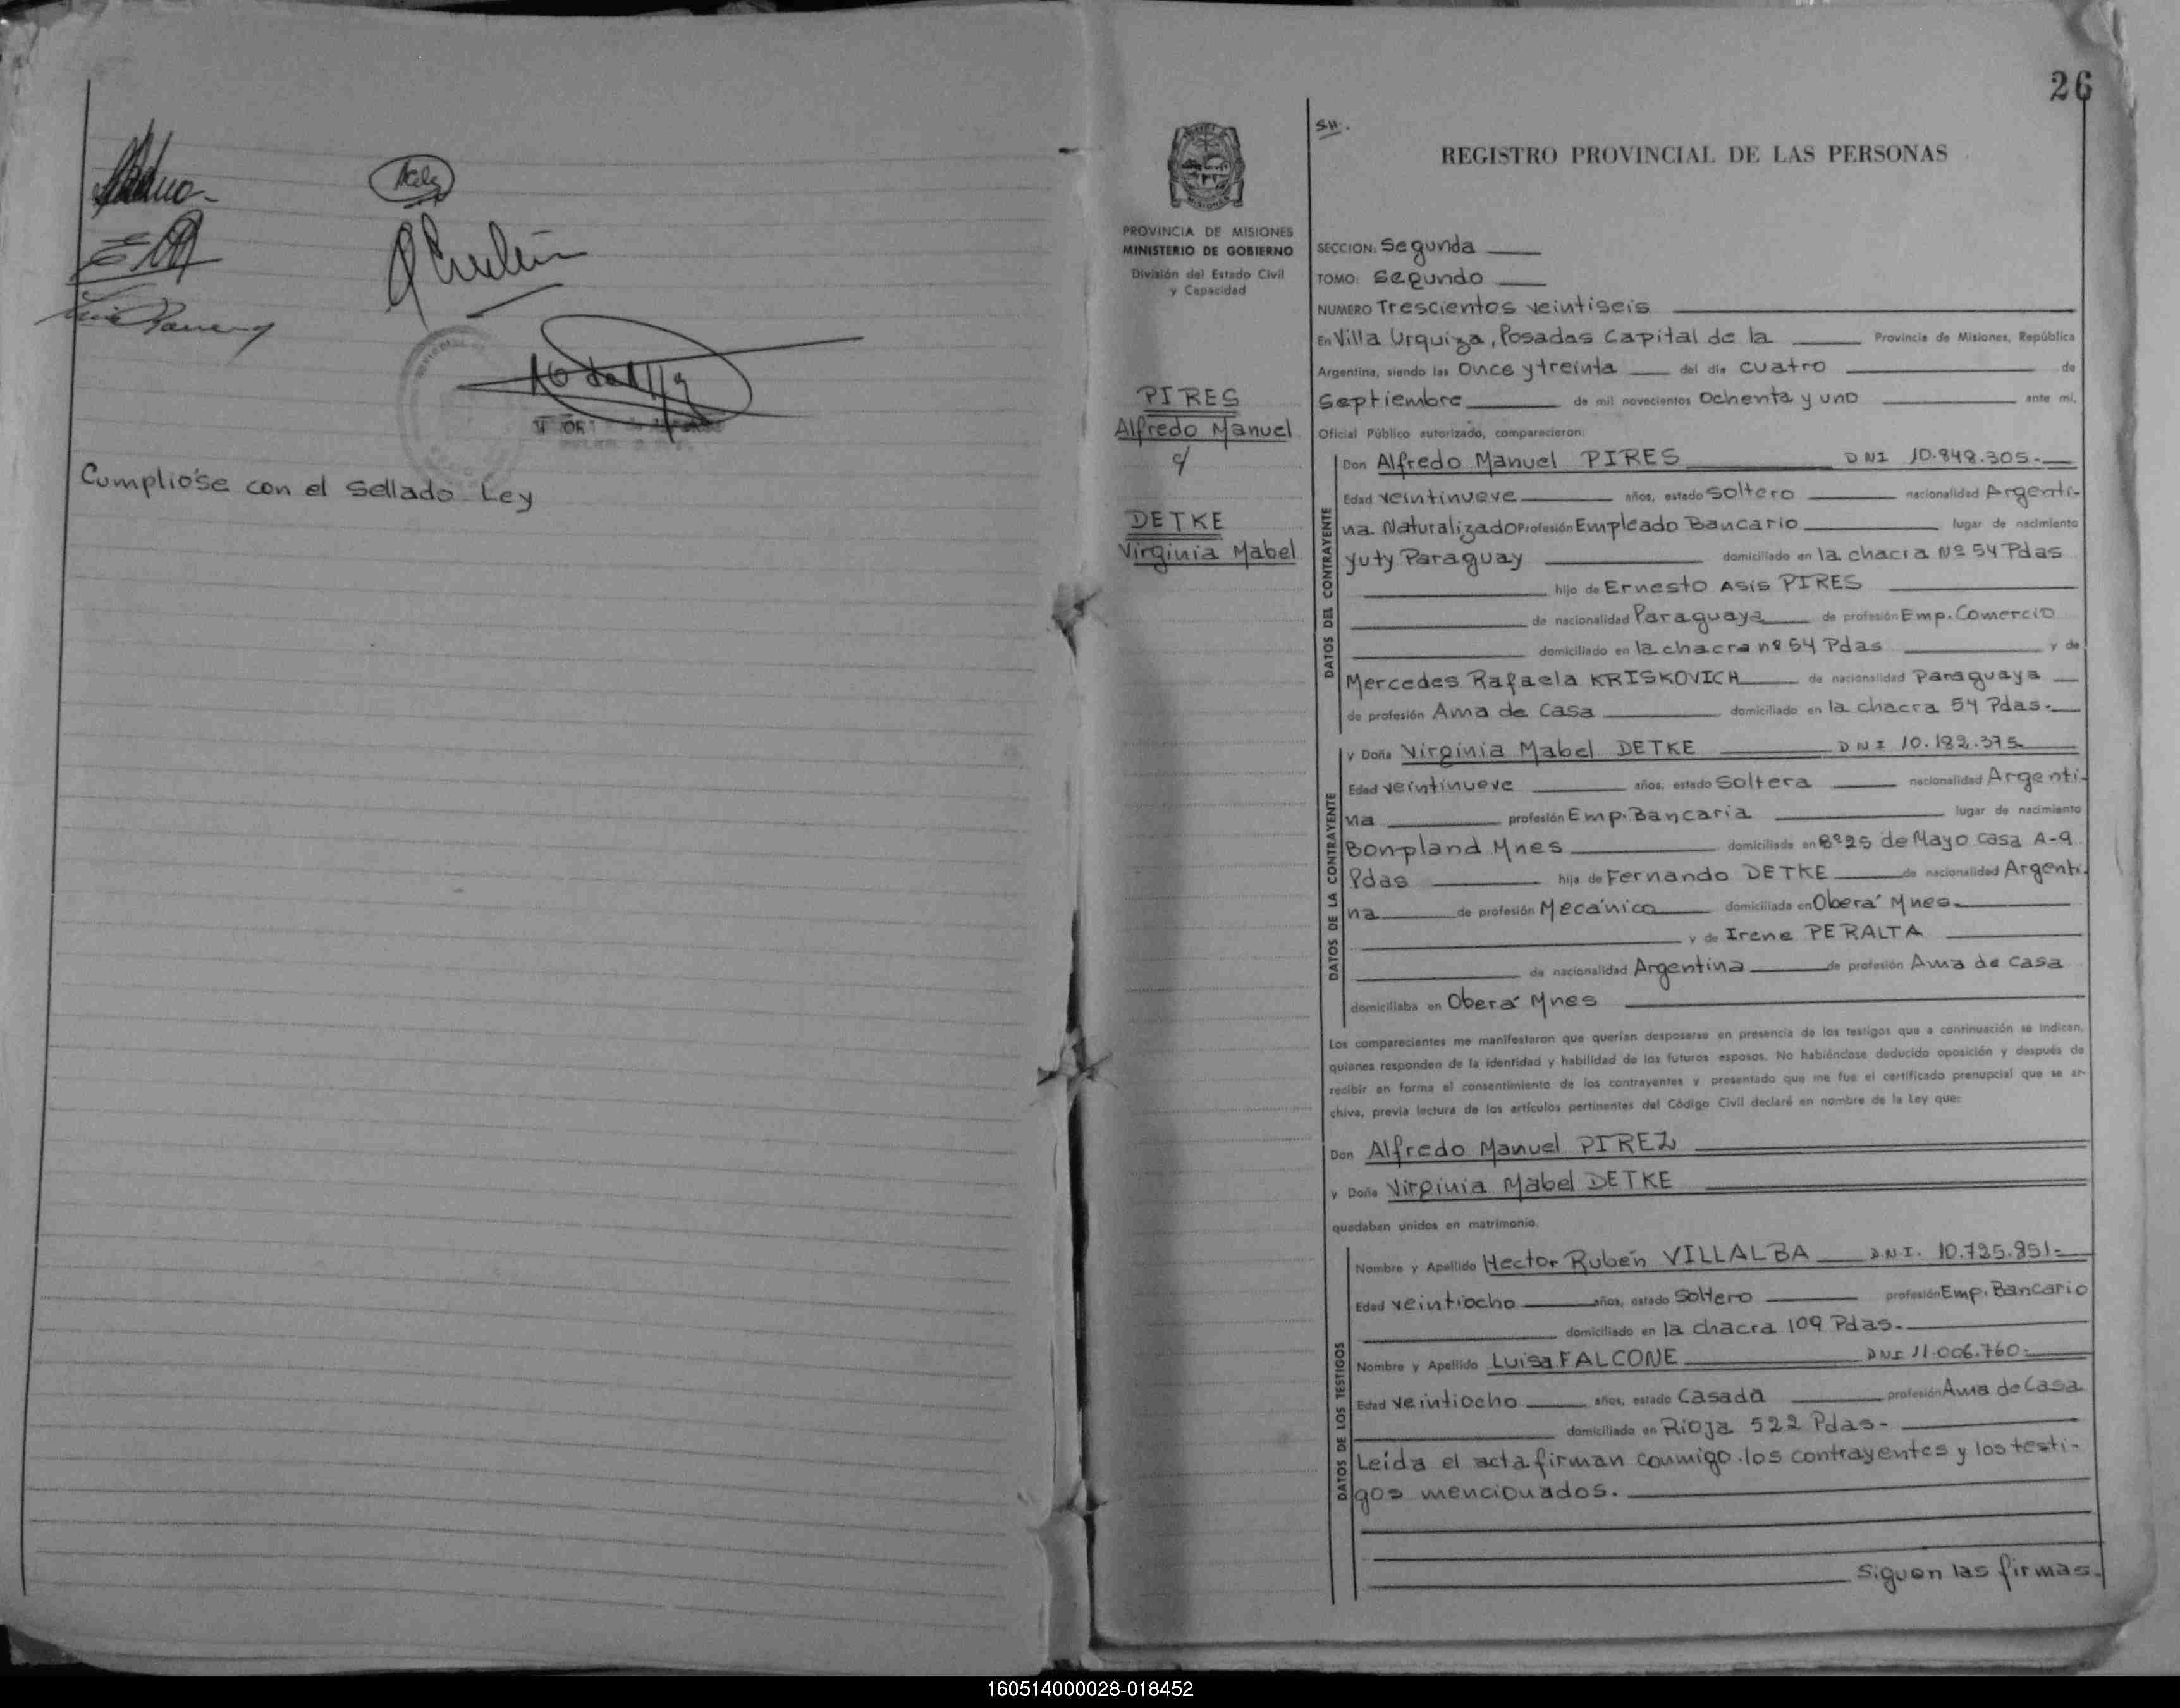 Cumplióse con el sellado Ley
26
SH.
REGISTRO PROVINCIAL DE LAS PERSONAS
MISIONES
PROVINCIA DE MISIONES
MINISTERIO DE GOBIERNO
División del Estado Civil
y Capacidad
PIRES
Alfredo Manuel
c/
DETKE
Virginia Mabel
SECCION: Segunda
TOMO: Segundo
NUMERO Trescientos veintiseis
En Villa Urquiza, Posadas Capital de la Provincia de Misiones, República
Argentina, siendo las Once y treinta del día cuatro de
Septiembre de mil novecientos Ochenta y uno ante mí,
Oficial Público autorizado, comparecieron:
DATOS DEL CONTRAYENTE
Don Alfredo Manuel PIRES DNI 10.848.305.-
Edad veintinueve años, estado Soltero nacionalidad Argenti-
na Naturalizado Profesión Empleado Bancario lugar de nacimiento
Yuty Paraguay domiciliado en la chacra Nº 54 Pdas
hijo de Ernesto Asís PIRES
de nacionalidad Paraguaya de profesión Emp. Comercio
domiciliado en la chacra nº 54 Pdas y de
Mercedes Rafaela KRISKOVICH de nacionalidad Paraguaya
de profesión Ama de Casa domiciliado en la chacra 54 Pdas.-
DATOS DE LA CONTRAYENTE
y Doña Virginia Mabel DETKE DNI 10.182.375
Edad veintinueve años, estado Soltera nacionalidad Argenti-
na profesión Emp. Bancaria lugar de nacimiento
Bonpland Mnes domiciliada en Bº 25 de Mayo casa A-9
Pdas hija de Fernando DETKE de nacionalidad Argenti-
na de profesión Mecánico domiciliado en Oberá Mnes.
y de Irene PERALTA
de nacionalidad Argentina de profesión Ama de casa
domiciliaba en Oberá Mnes
Los comparecientes me manifestaron que querían desposarse en presencia de los testigos que a continuación se indican,
quienes responden de la identidad y habilidad de los futuros esposos. No habiéndose deducido oposición y después de
recibir en forma el consentimiento de los contrayentes y presentado que me fue el certificado prenupcial que se ar-
chiva, previa lectura de los artículos pertinentes del Código Civil declaré en nombre de la Ley que:
Don Alfredo Manuel PIREZ
y Doña Virginia Mabel DETKE
quedaban unidos en matrimonio.
DATOS DE LOS TESTIGOS
Nombre y Apellido Hector Rubén VILLALBA D.N.I. 10.725.851.-
Edad veintiocho años, estado Soltero profesión Emp. Bancario
domiciliado en la chacra 109 Pdas.-
Nombre y Apellido Luisa FALCONE DNI 11.006.760.-
Edad veintiocho años, estado Casada profesión Ama de Casa
domiciliado en Rioja 522 Pdas-
Leída el acta firman conmigo los contrayentes y los testi-
gos mencionados.
Siguen las firmas.
160514000028-018452